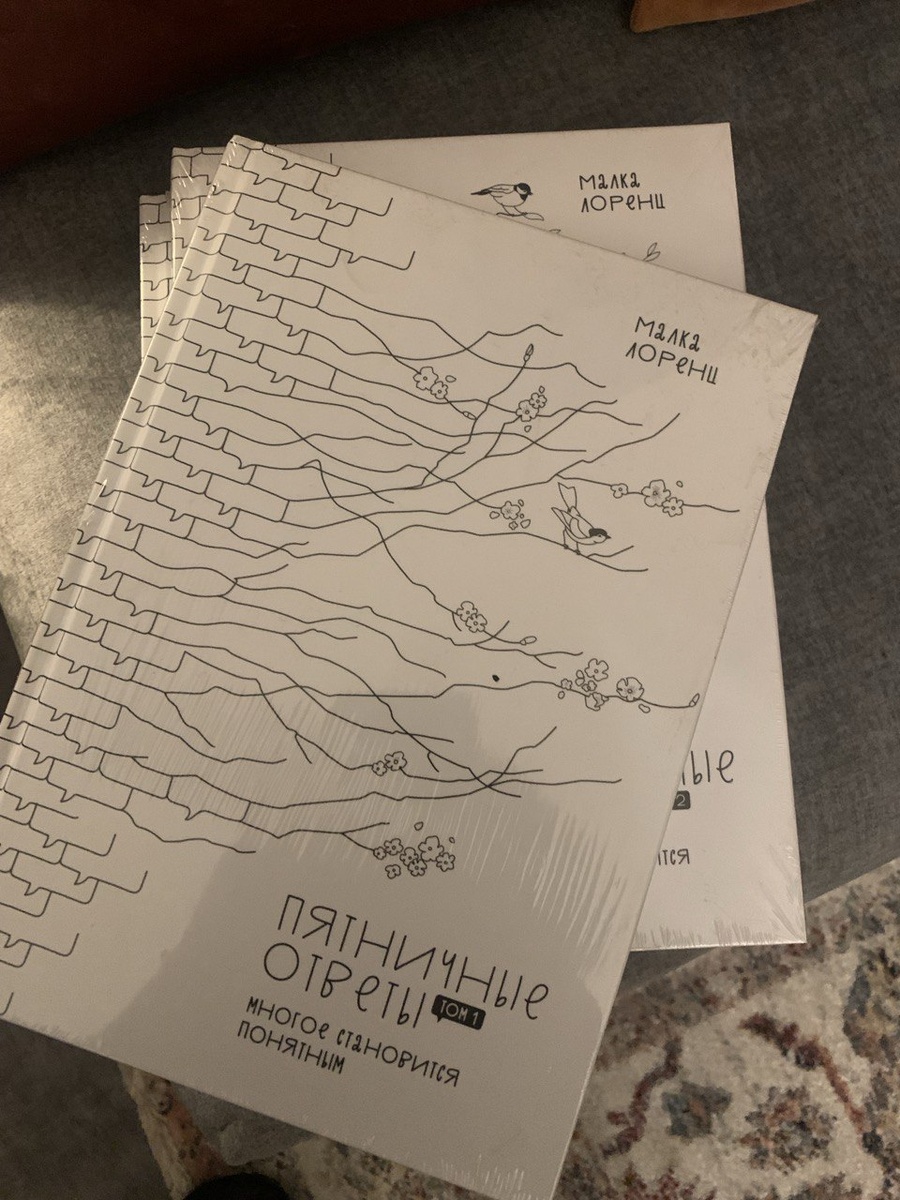 Малка
Лоренц
Малка
Лоренц
ные
2
ится
Пятничные
ответы
том 1
многое становится
понятным